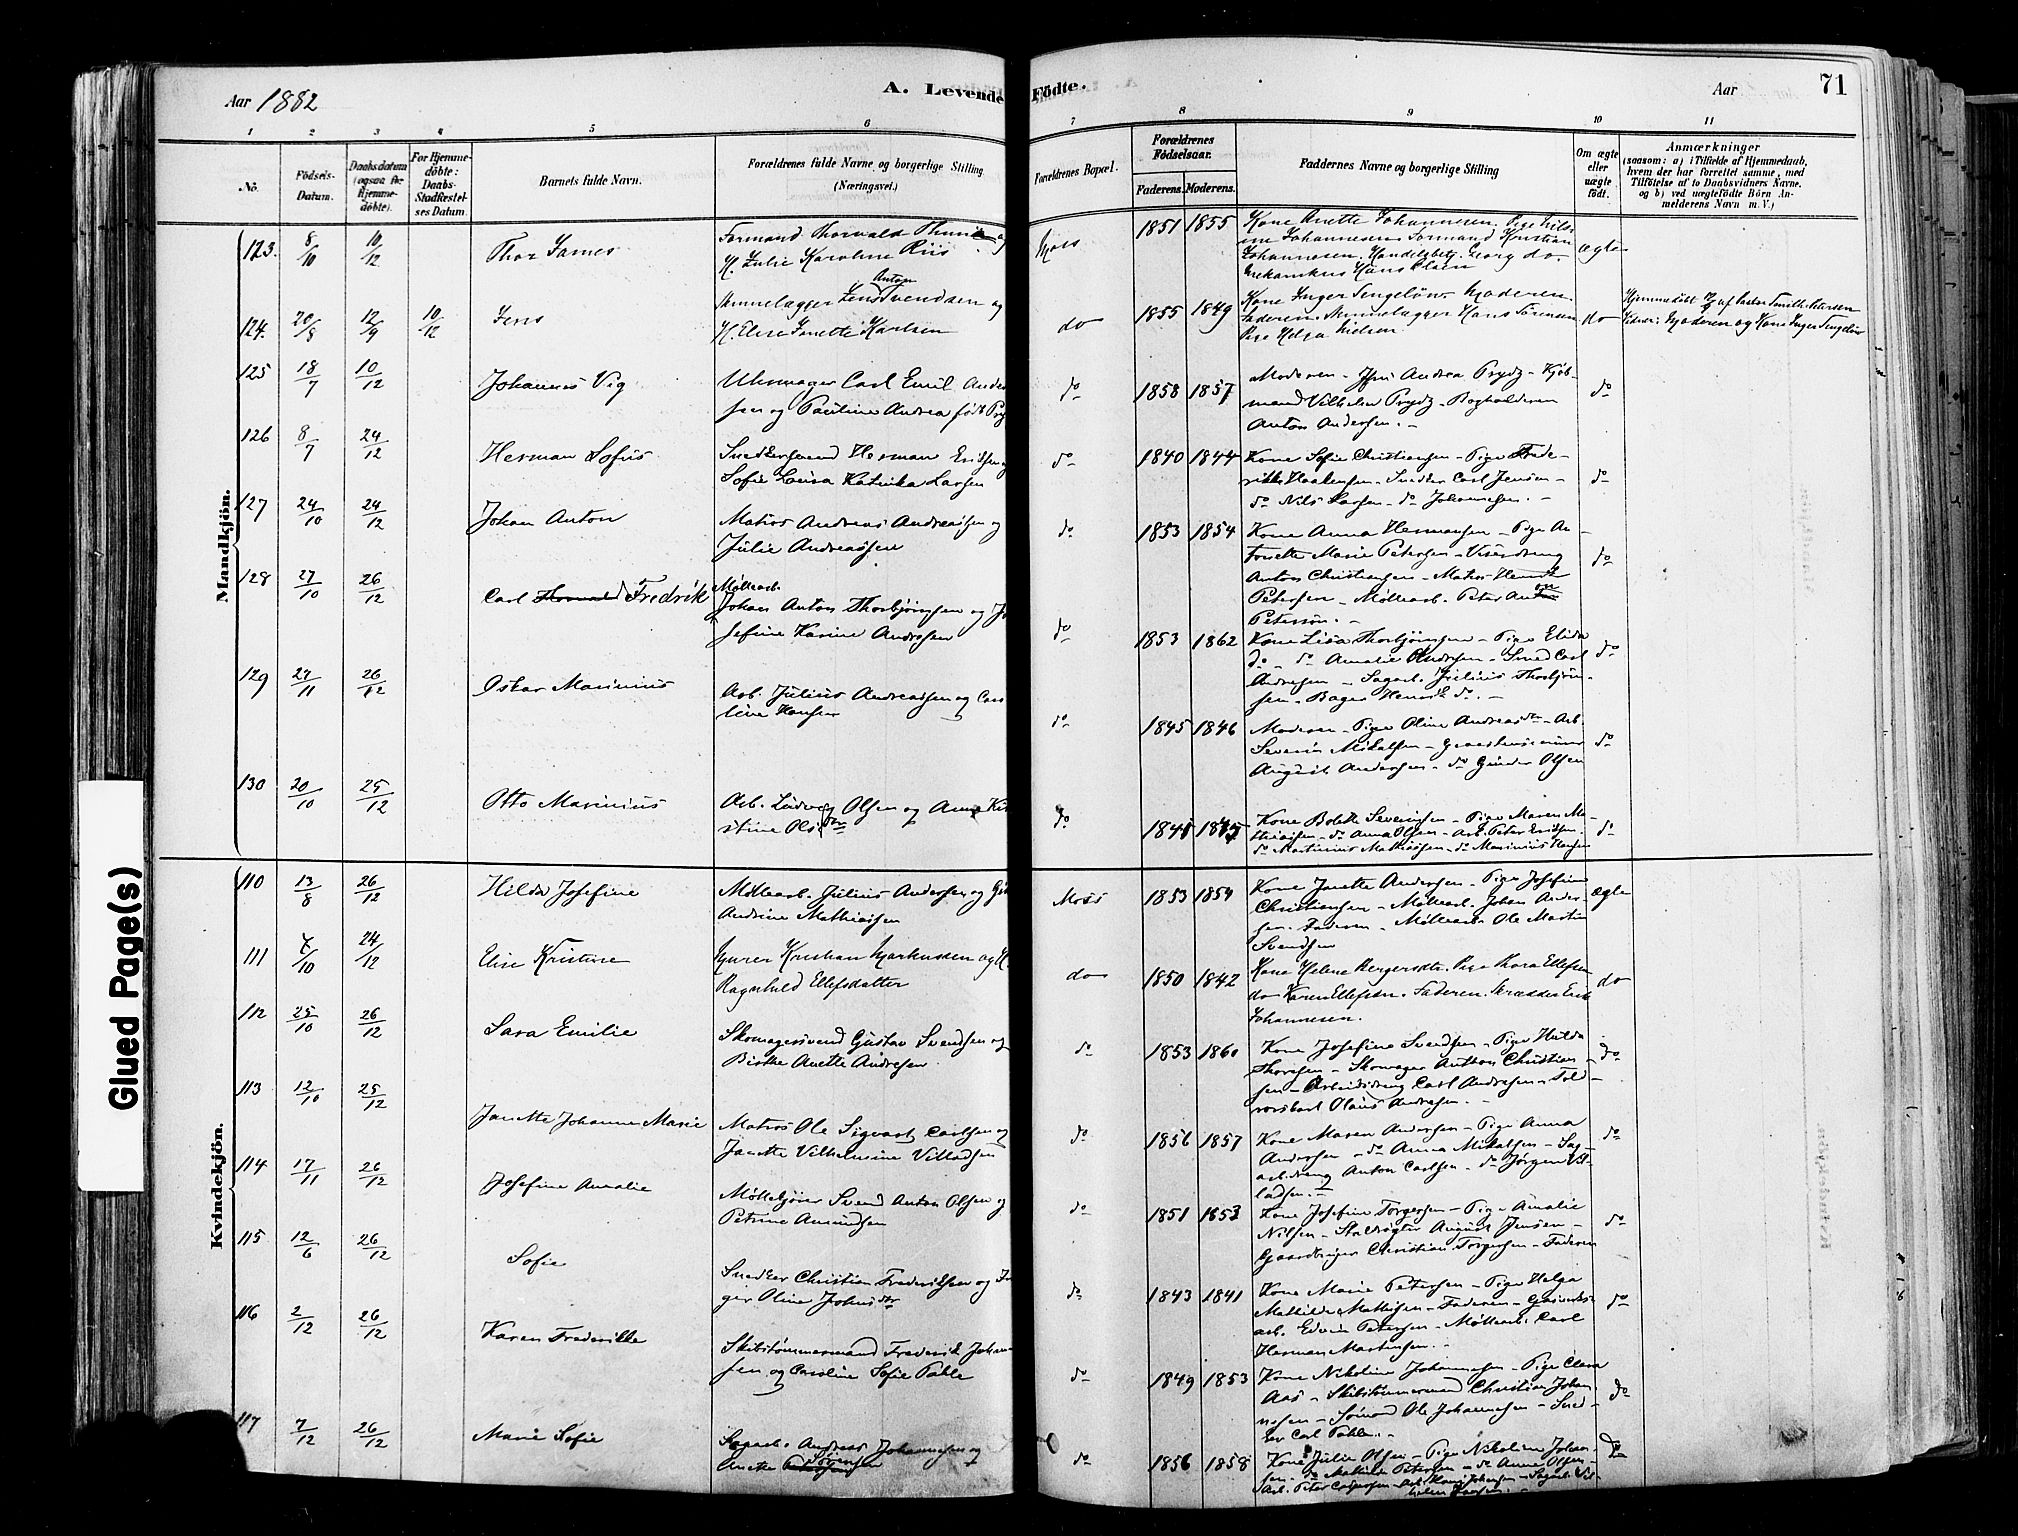 Aar 1882
A. Levende Födte.
Aar
71
1 2 3 4 5 6 7 8 9 10 11
No.
Födsels-Datum.
Daabsdatum (ogsaa for Hjemmedöbte).
For Hjemmedöbte: Daabs-Stadfæstelses Datum.
Barnets fulde Navn.
Forældrenes fulde Navne og borgerlige Stilling (Næringsvei.)
Forældrenes Bopæl.
Forældrenes Födselsaar.
Faderens. Moderens.
Faddernes Navne og borgerlige Stilling
Om ægte eller uægte födt.
Anmærkninger
(saasom: a) i Tilfælde af Hjemmedaab, hvem der har forrettet samme, med Tilföielse af to Daabsvidners Navne. og b) ved uægtefödte Börn Anmelderens Navn m. V.)
Mandkjön.
123. 8/10 10/12 Thor James
H. Julie Karoline Riis
Moss 1851 1855
Kone Anette Johannesen. Pige
Johannesen. Formand Kristian
Johannesen. Handelsbetj. Georg do.
ægte
124. 20/8 12/9 10/12 Jens
Anton
H. Elise Anette Karlsen
do 1855 1849
Pige Helga Nielsen
do
125 18/7 10/12 Johannes Vig
Uhrmager Carl Emil Ander
sen og Pauline Andrea født Pry
do 1858 1857
Moderen – Jfr Andrea Prydz – Kjøb-
mand Vilhelm Prydz – Bogholderen
Anton Andersen. –
do
126 8/7 24/12 Herman Sofus
Snedkersvend Herman Eriksen og
Sofie Lovisa Katrinka Larsen
do 1840 1844
Kone Sofie Christiansen – Pige Frede-
rikke Haakensen – Snedker Carl Jensen –
do Nils Larsen – do Johannesen. –
do
127 24/10 24/12 Johan Anton
Matros Andreas Andreassen og
Julie Andreassen
do 1853 1854
Kone Anna Hermansen – Pige An-
tonette Marie Petersen – Visergut
Anton Christiansen – Matros Henrik
Petersen – Møllearb. Peter Anton
Peterson. –
do
128 27/10 26/12 Carl Thorvald Fredrik
Møllearb.
Johan Anton Thorbjørnsen og Jo
sefine Karine Andresen
do 1853 1862
Kone Lisa Thorbjørnsen – Pige Elida
do – do Amalie Andresen – Sned Carl
Andresen – Sagarb. Julius Thorbjørn-
sen – Bager Henrik do. –
do
129 27/11 26/12 Oskar Marinius
Arb. Julius Andreassen og Caro
line Hansen
do 1845 1846
Moderen – Pige Oline Andreasdtr – Arb.
Severin Mikalsen –
August Andersen – do Gunder Olsen
do
130 20/10 25/12 Otto Marinius
Arb. Ludvig Olsen og Anne Kri
stine Olsdtr
do 1845
Kone Bolette Severinsen – Pige Maren Ma-
thiassen – do Anna Olsen – Arb. Peter Eriksen
do Martinius Mathiassen – do Marinius Hansen
do
Kvindekjön.
110 13/8 26/12 Hilda Josefine
Møllearb. Julius Andersen og
Andrine Mathiassen
Moss 1853 1854
Kone Anette Andersen – Pige Josefine
Christiansen – Møllearb. Johan Ander-
sen – Faderen – Møllearb. Ole Martin
Svendsen
ægte
111 7/10 24/12 Elise Kristine
Murer Kristian Markussen og H.
Ragnhild Ellefsdatter
do 1850 1842
Kone Helene Bergersdtr. Pige Thora Ellefsen
do Karen Ellefsen. Faderen. Skrædder Erik
Johannesen.
do
112 25/10 26/12 Sara Emilie
Skomagersvend Gustav Svendsen og
Birthe Anette Andresen
do 1853 1860
Kone Josefine Svendsen – Pige Hulda
Thoresen – Skomager Anthon Christian-
sen – Arbeidsdreng Carl Andresen – Told-
rorskarl Olaus Andresen. –
do
113 12/10 25/12 Janette Johanne Marie
Matros Ole Sigvart Carlsen og
Janette Vilhelmine Villadsen
do 1856 1857
Kone Maren Andersen – Pige Anna
Andersen – do Anna Mikalsen – Sag-
arb.dreng Anton Carlsen – do Jørgen Vil-
ladsen. –
do
114 17/11 26/12 Josefine Amalie
Møllekjører Svend Anton Olsen og
Petrine Amundsen
do 1851 1853
Kone Josefine Torgersen – Pige Amalie
Nilsen – Staldrøgter August Jensen –
Gaardbruger Christian Torgersen – Faderen
do
115 12/6 26/12 Sofie
Snedker Christian Frederiksen og In
ger Oline Johnsdtr
do 1843 1841
Kone Marie Petersen – Pige Helga
Mathilde Mathisen – Faderen – Gasverks-
arb. Edvin Petersen – Møllearb. Carl
Herman Martinsen. –
do
116 2/12 26/12 Karen Frederikke
Skibstømmermand Frederik Johan
sen og Caroline Sofie Pahle
do 1849 1853
Kone Nikoline Johannesen – Pige Clara
Aas – Skibstømmermand Christian Johan-
nesen – Sømand Ole Johannesen – Sned-
ker Carl Pahle. –
do
117 7/12 26/12 Marie Sofie
Sagarb. Andreas Johannesen og
Anette Sørensen
do 1856 1858
Kone Julie Olsen – Pige Nikoline Johan-
sen – do Mathilde Petersen – do Anne Olsen –
do
Glued Page(s)